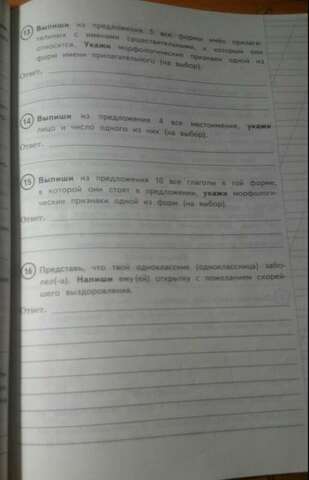 13 Выпиши из предложения 5 все формы имён прилага-
тельных с именами существительными, к которым они
относятся. Укажи морфологические признаки одной из
форм имени прилагательного (на выбор).
Ответ.
14 Выпиши из предложения 4 все местоимения, укажи
лицо и число одного из них (на выбор).
Ответ.
15 Выпиши из предложения 10 все глаголы в той форме,
в которой они стоят в предложении, укажи морфологи-
ческие признаки одной из форм (на выбор).
Ответ.
16 Представь, что твой одноклассник (одноклассница) забо-
лел(-а). Напиши ему(ей) открытку с пожеланием скорей-
шего выздоровления.
Ответ.